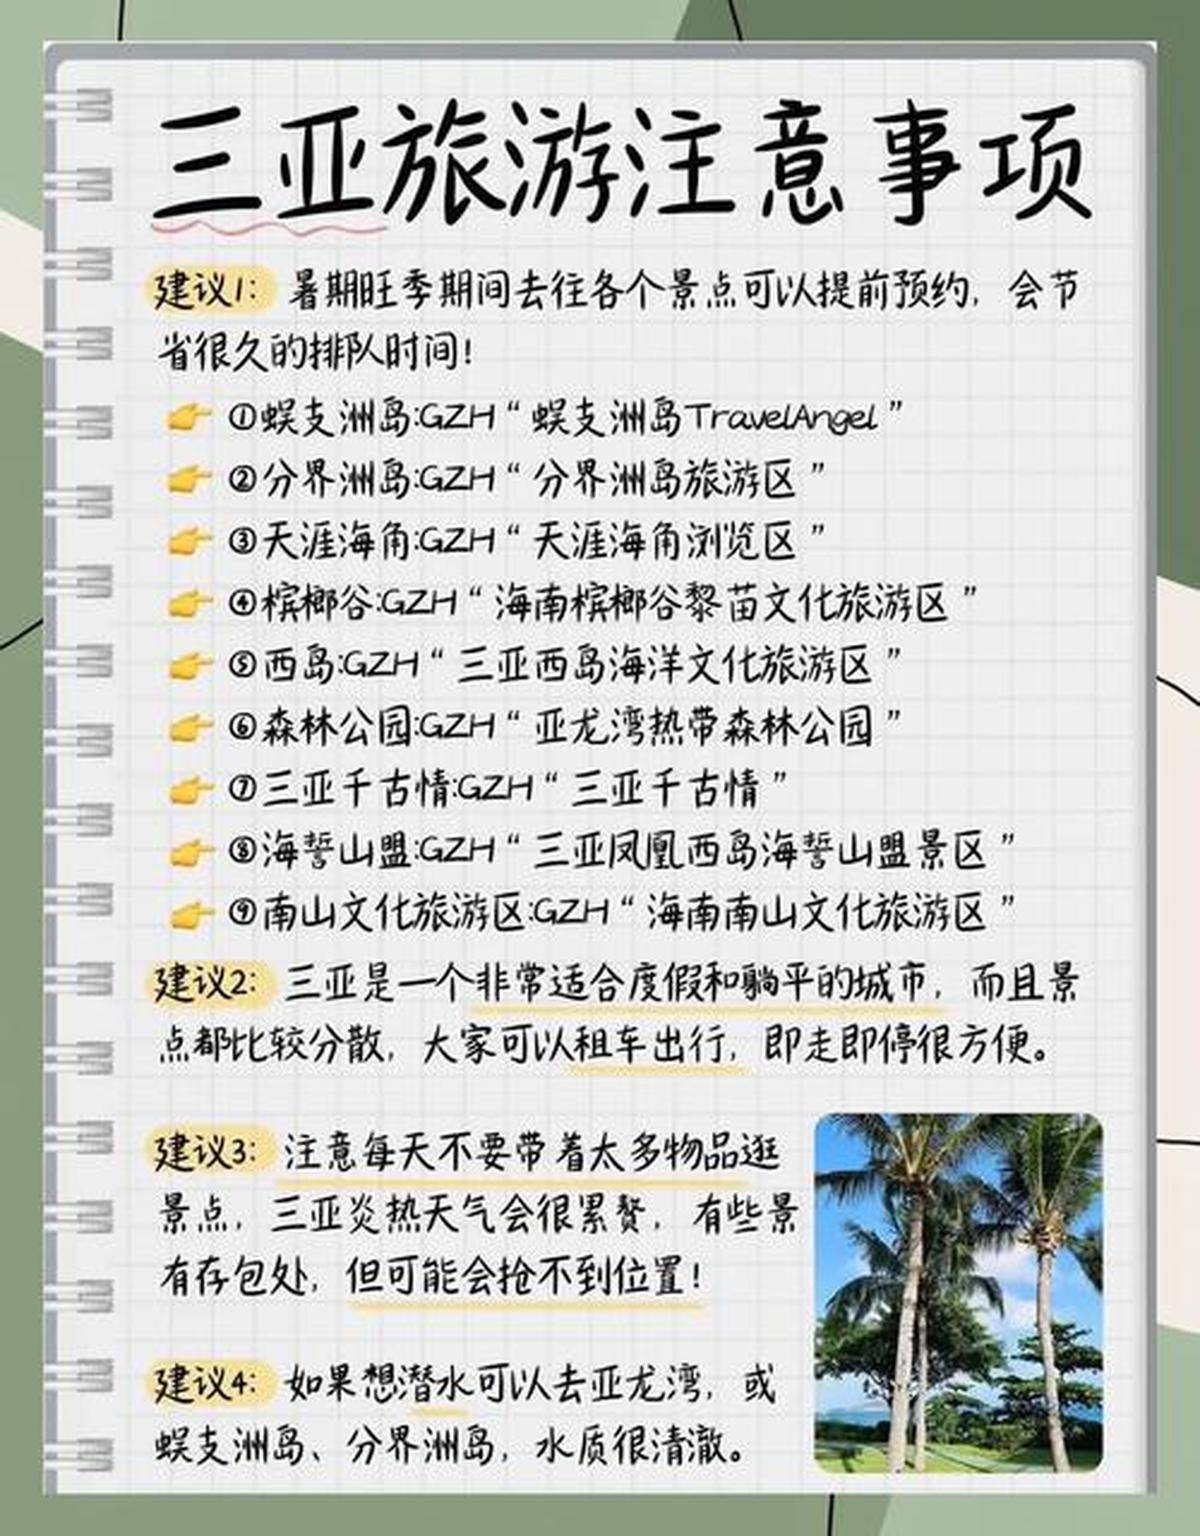 三亚旅游注意事项
建议1: 暑期旺季期间去往各个景点可以提前预约，会节
省很久的排队时间!
①蜈支洲岛:GZH“蜈支洲岛TravelAngel”
②分界洲岛:GZH“分界洲岛旅游区”
③天涯海角:GZH“天涯海角浏览区”
④槟榔谷:GZH“海南槟榔谷黎苗文化旅游区”
⑤西岛:GZH“三亚西岛海洋文化旅游区”
⑥森林公园:GZH“亚龙湾热带森林公园”
⑦三亚千古情:GZH“三亚千古情”
⑧海誓山盟:GZH“三亚凤凰西岛海誓山盟景区”
⑨南山文化旅游区:GZH“海南南山文化旅游区”
建议2: 三亚是一个非常适合度假和躺平的城市，而且景
点都比较分散，大家可以租车出行，即走即停很方便。
建议3: 注意每天不要带着太多物品逛
景点，三亚炎热天气会很累赘，有些景
有存包处，但可能会抢不到位置!
建议4: 如果想潜水可以去亚龙湾，或
蜈支洲岛、分界洲岛，水质很清澈。